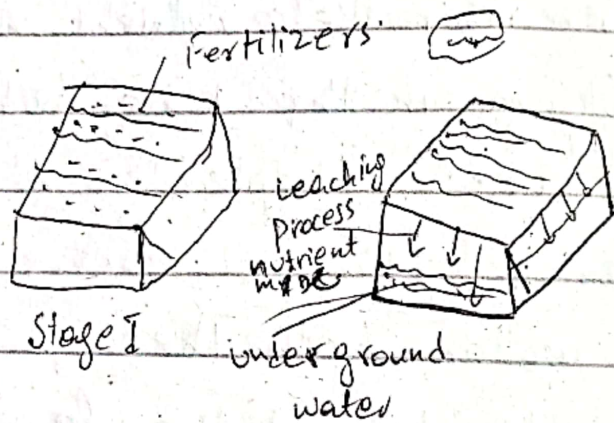 Fertilizers.
Leaching
process
nutrient
Stage I
underground
water